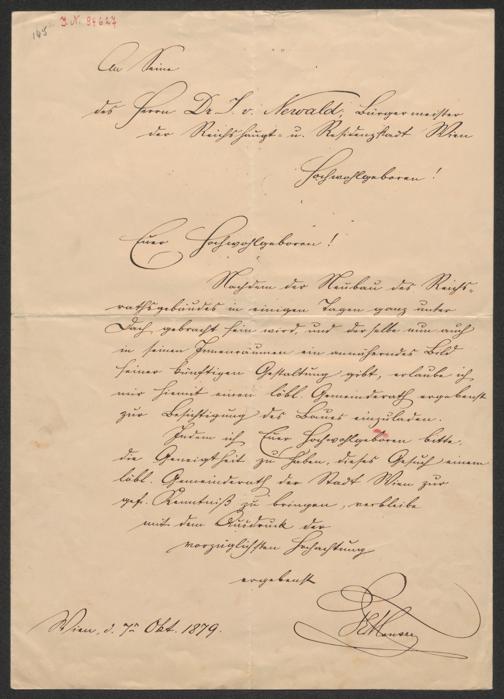 165
J.N. 84627
An Seine
des Herrn Dr. J. v. Newald, Bürgermeister
der Reichshaupt- u. Residenzstadt Wien
Hochwohlgeboren!
Euer Hochwohlgeboren!
Nachdem der Neubau des Reichs-
rathsgebäudes in einigen Tagen ganz unter
Dach gebracht sein wird, und derselbe nun auch
in seinen Innenräumen ein annäherndes Bild
seiner künftigen Gestaltung gibt, erlaube ich
mir hiemit einen löbl. Gemeinderath ergebenst
zur Besichtigung des Baues einzuladen.
Indem ich Euer Hochwohlgeboren bitte,
die Geneigtheit zu haben, dieses Gesuch einem
löbl. Gemeinderath der Stadt Wien zur
gef. Kenntniß zu bringen, verbleibe
mit dem Ausdruck der
vorzüglichsten Hochachtung
ergebenst
Hansen
Wien, d. 7n Okt. 1879.